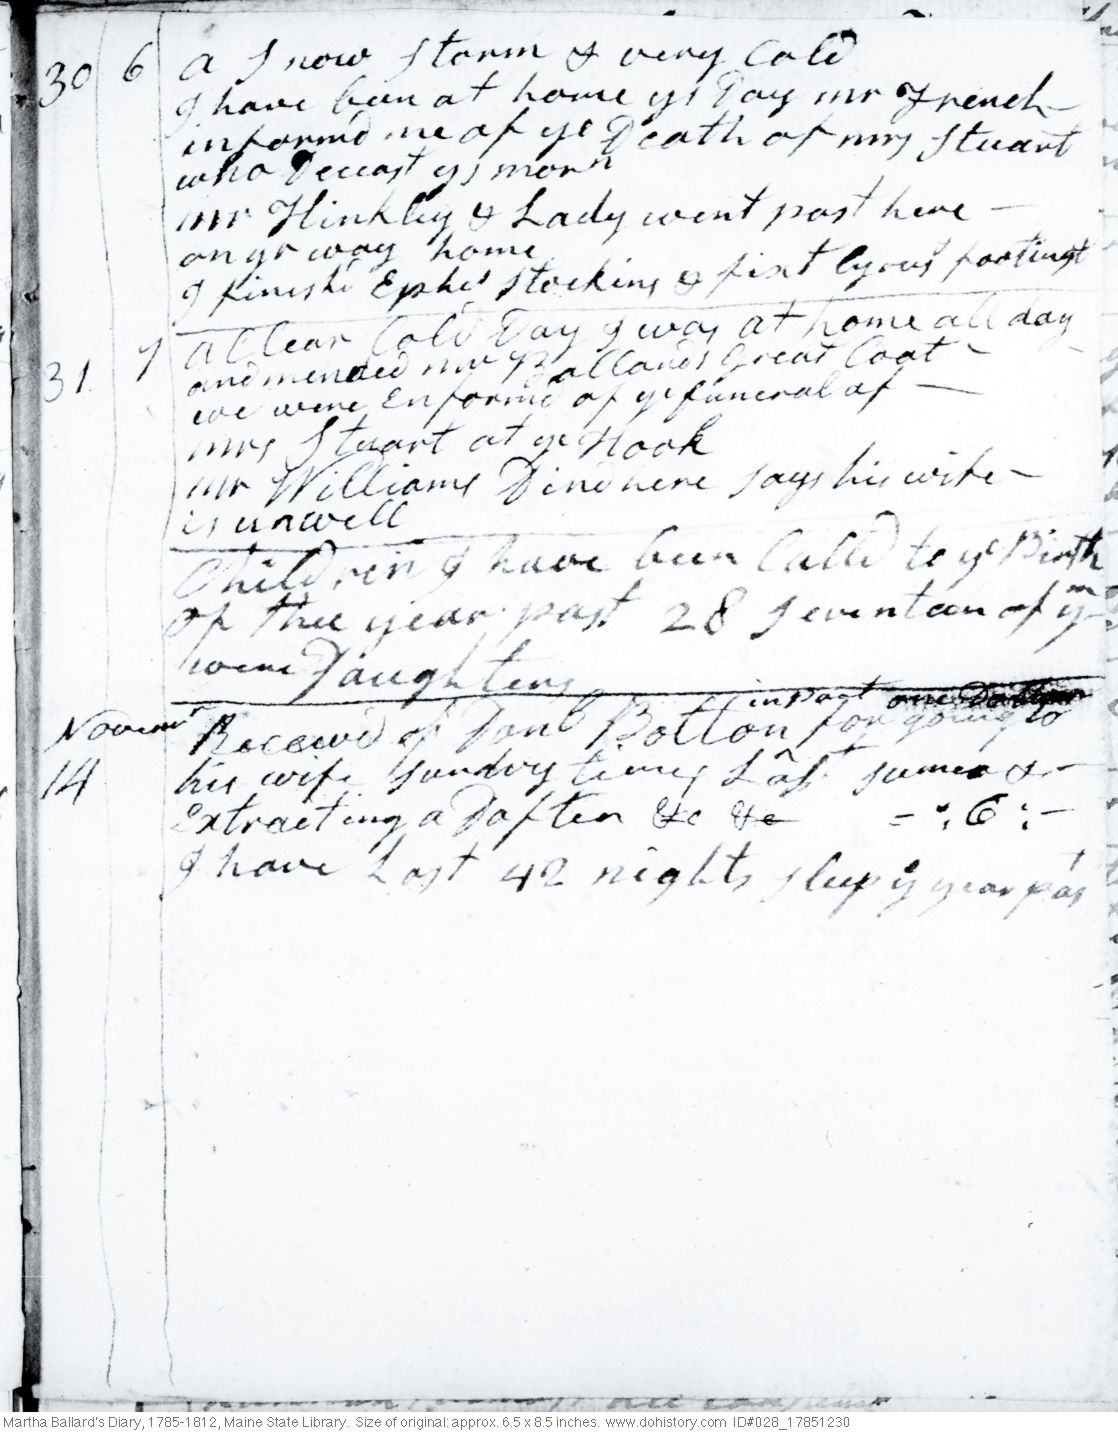 30 6 a Snow Storm & very Cold
I have ben at home ys Day mr French
informd me of ye Death of mrs Stuart
who Deceast ys morn
mr Hinkley & Lady went past here —
on yr way home
I finisht Ephes Stockins & fixt Cyrus footings
31 7 a Clear Cold Day I was at home all day
and mended mr Ballards Great Coat —
we were Enformd of ye funeral of —
mrs Stuart at ye Hook
mr Williams Dind here says his wife —
is unwell
Children I have been Calld to ye Birth
of thee year past 28 Seventeen of ym
were Daughters
in part one
Novemr Received of Danl Bolton for going to
14 his wife sundry times Last sumer & —
Extracting a Daften &c &c = : 6 : —
I have Lost 42 nights sleep ye year past
Martha Ballard's Diary, 1785-1812, Maine State Library. Size of original: approx. 6.5 x 8.5 inches. www.dohistory.com ID#028_17851230